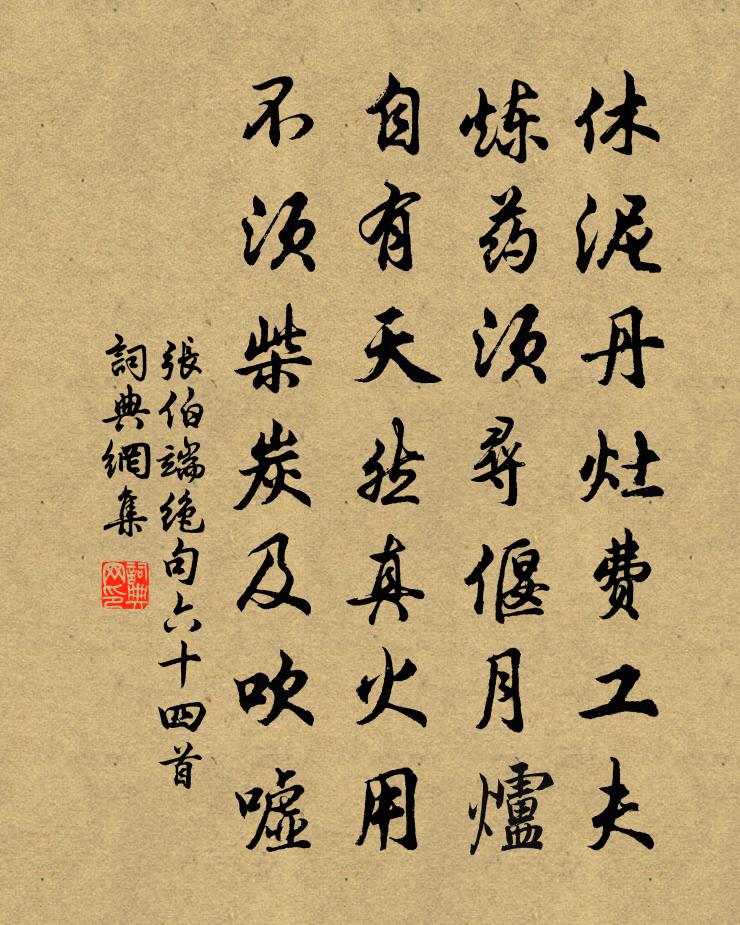 休泥丹灶费工夫
炼药须寻偃月爐
自有天然真火用
不须柴炭及吹嘘
張伯端绝句六十四首
詞典網集
詞典
网印